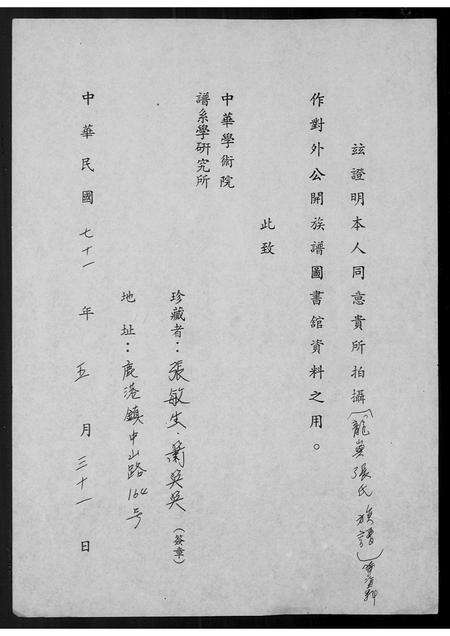 茲證明本人同意貴所拍攝（龍崗張氏族譜）
作對外公開族譜圖書館資料之用。
此致
中華學術院
譜系學研究所
珍藏者：張敏生．(簽章)
地址：鹿港鎮中山路164号
中華民國七十一年五月三十一日